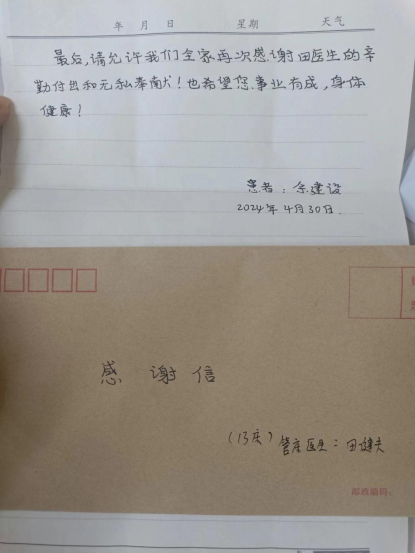 年 月 日 星期 天气
最后,请允许我们全家再次感谢田医生的辛
勤付出和无私奉献!也希望您事业有成,身体
健康!
患者:余建设
2024年4月30日.
感谢信
(13床)管床医生:田健夫
邮政编码: